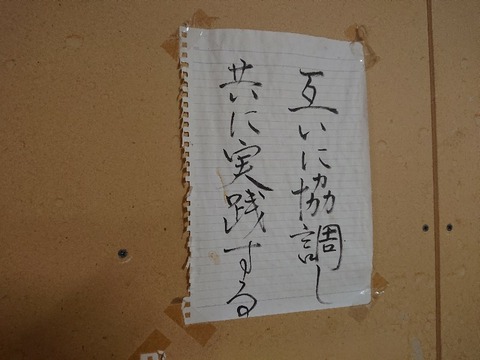 互いに協調し
共に実践する